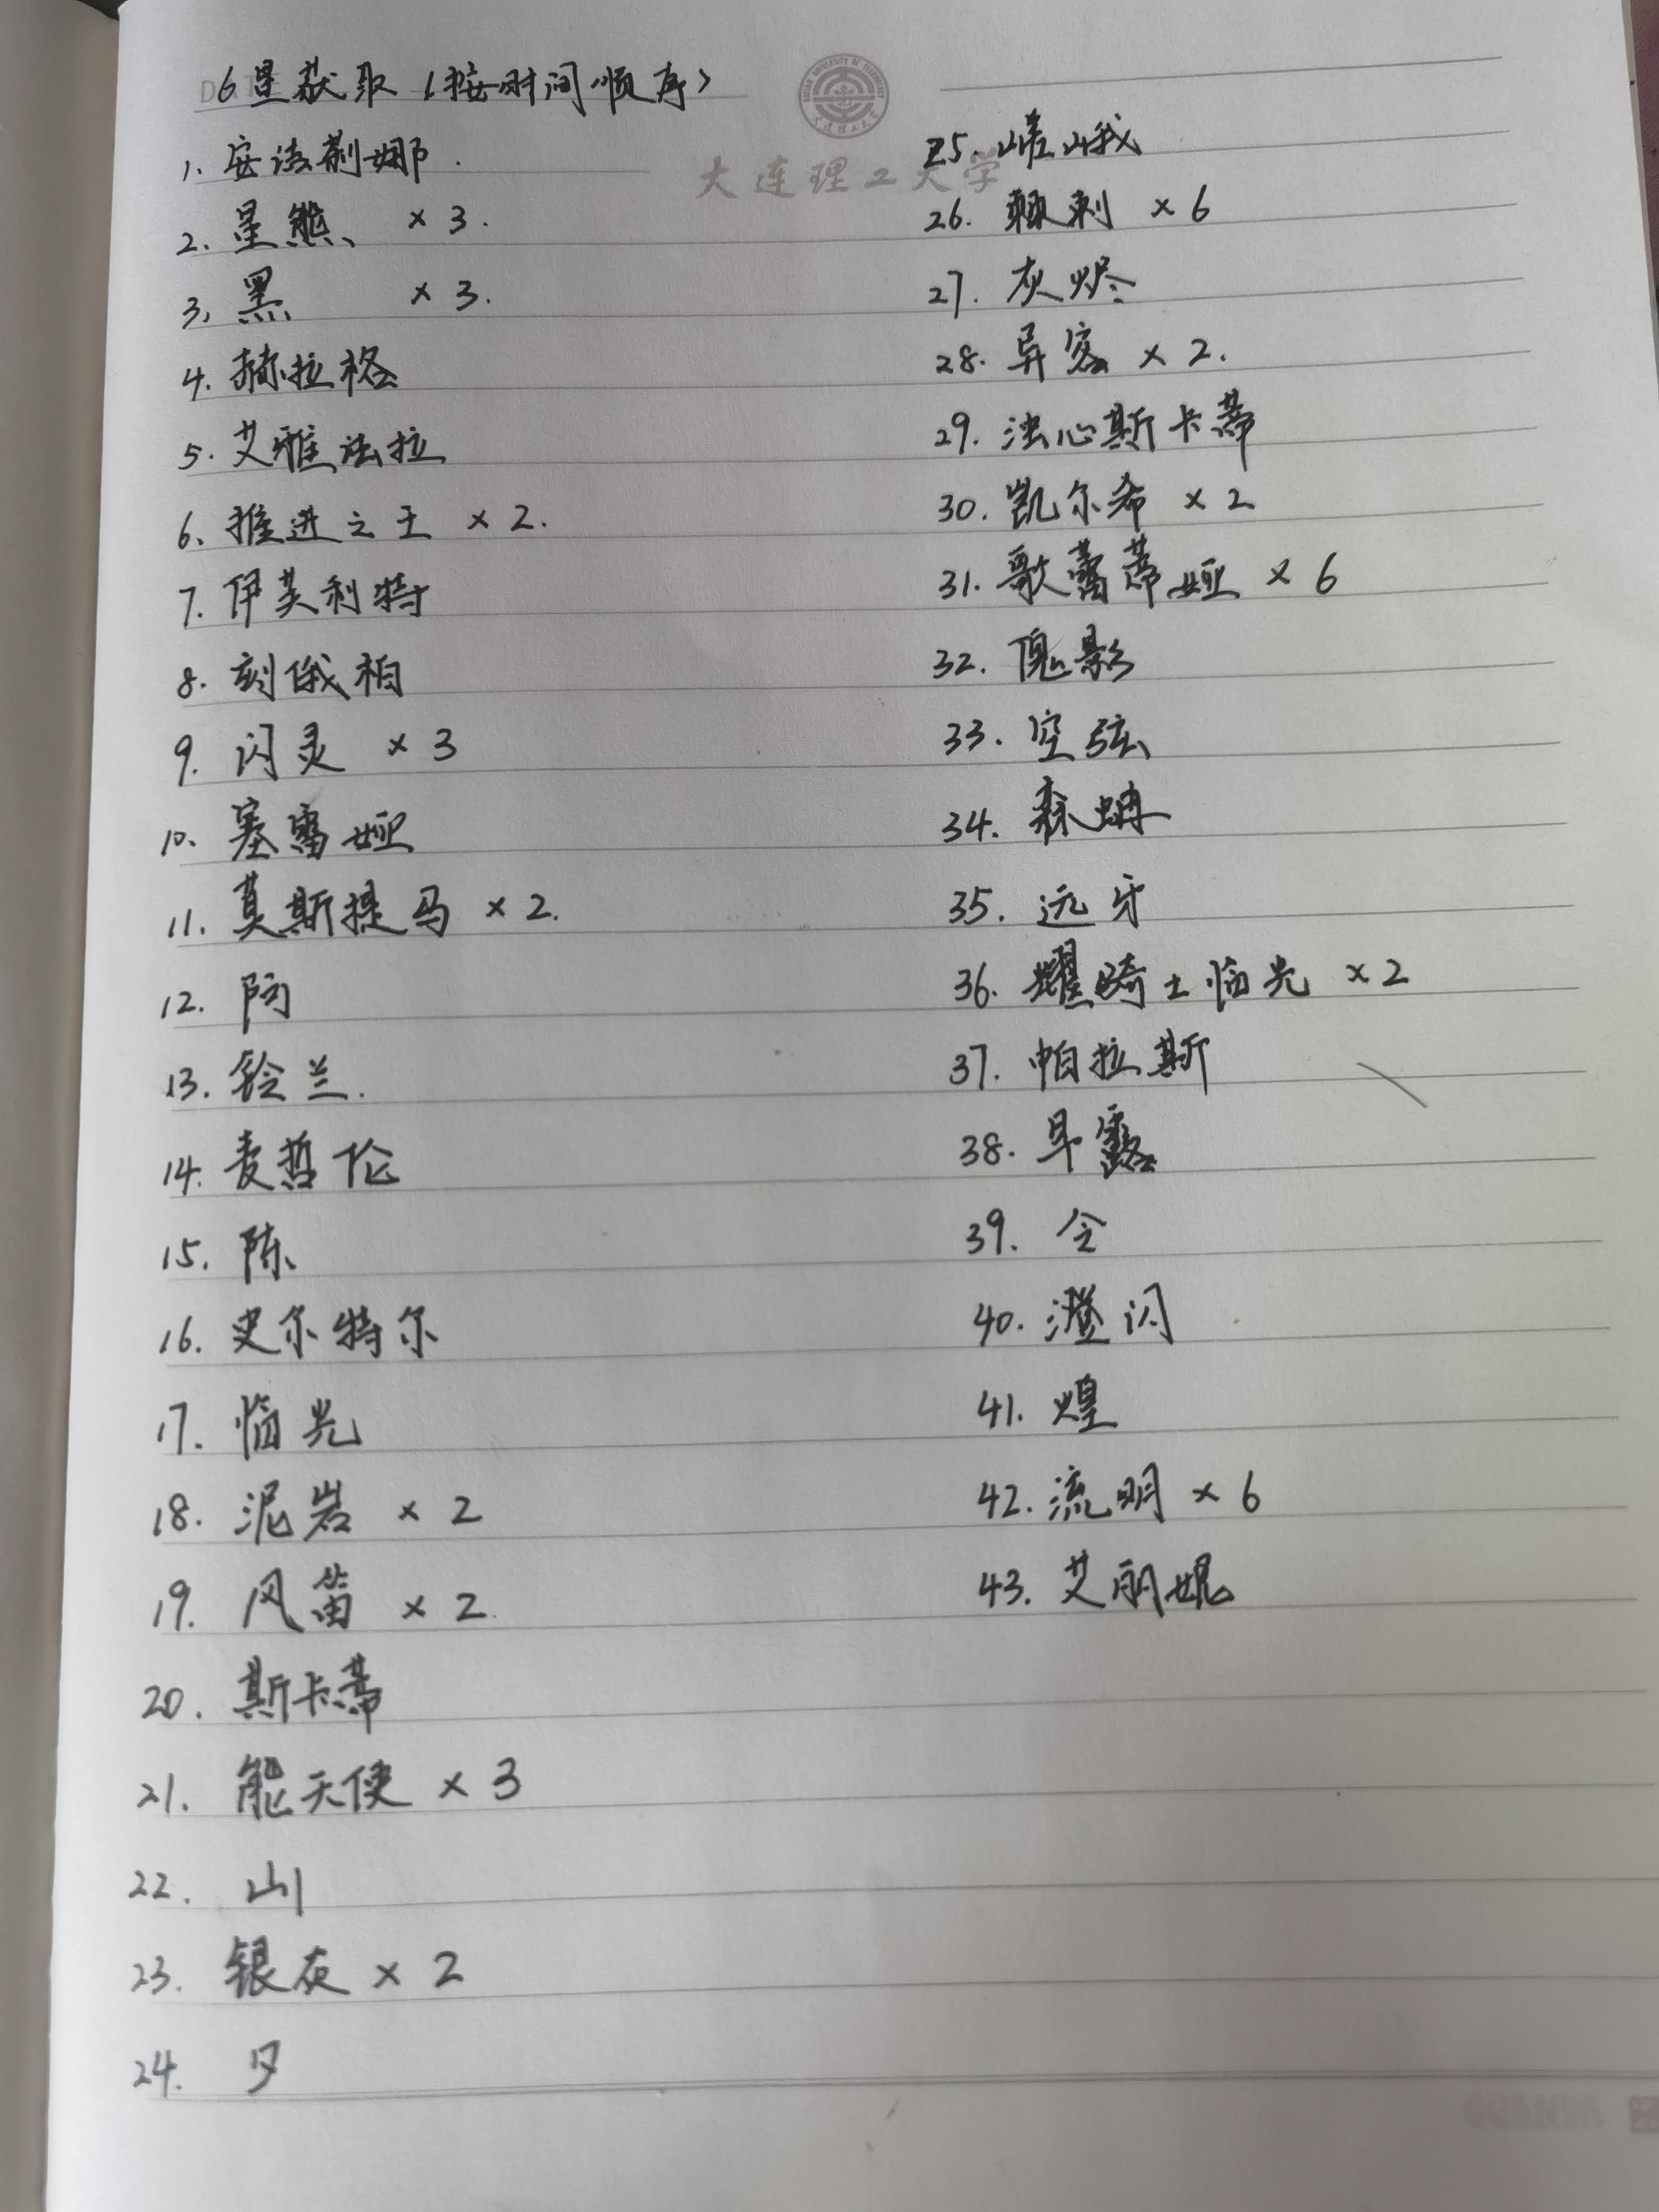 6星获取(按时间顺序>
大连理工大学
1. 安洁莉娜.
2. 星熊、 × 3.
3. 黑 × 3.
4. 赫拉格
5. 艾雅法拉
6. 推进之王 × 2.
7. 伊芙利特
8. 刻俄柏
9. 闪灵 × 3
10. 塞雷娅
11. 莫斯提马 × 2.
12. 阿
13. 铃兰.
14. 麦哲伦
15. 陈
16. 史尔特尔
17. 临光
18. 泥岩 × 2
19. 风笛 × 2.
20. 斯卡蒂
21. 能天使 × 3
22. 山
23. 银灰 × 2
24. 夕
25. 嵯峨
26. 棘刺 × 6
27. 灰烬
28. 异客 × 2.
29. 浊心斯卡蒂
30. 凯尔希 × 2
31. 歌蕾蒂娅 × 6
32. 傀影
33. 空弦
34. 森蚺
35. 远牙
36. 耀骑士临光 × 2
37. 帕拉斯
38. 早露
39. 令
40. 澄闪
41. 煌
42. 流明 × 6
43. 艾丽妮